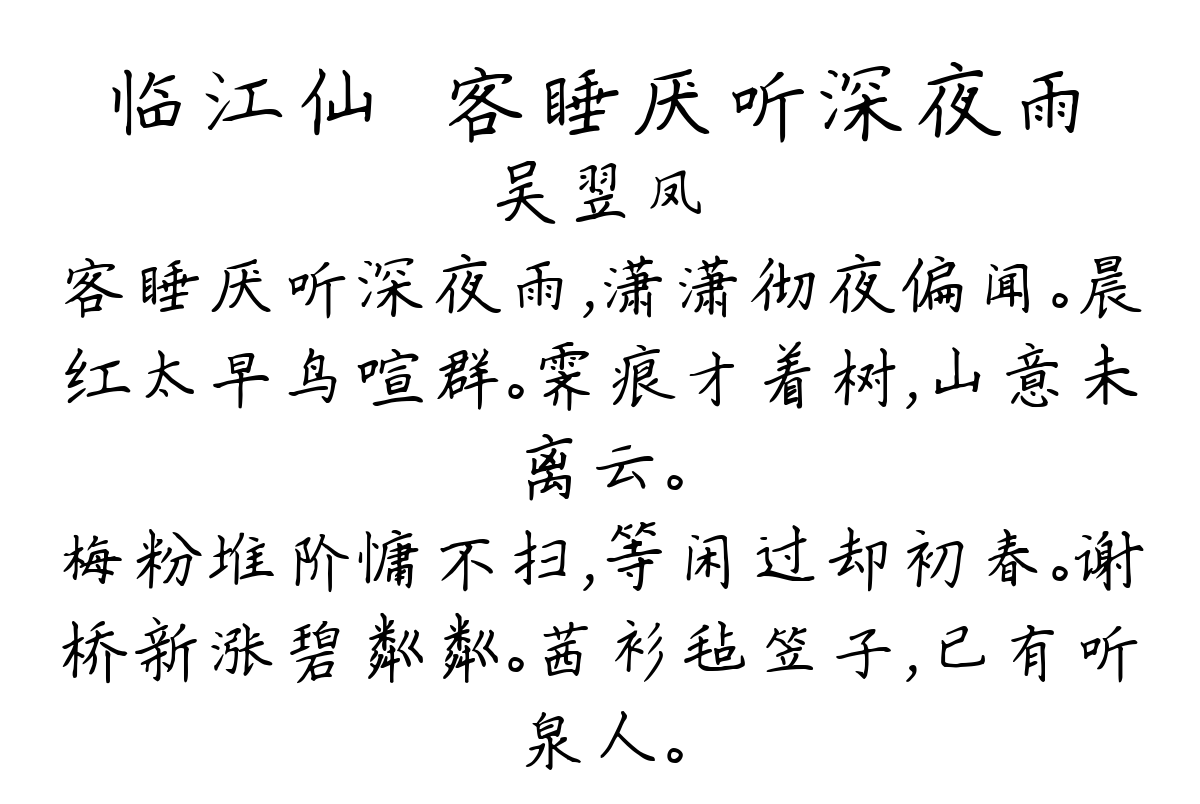 临江仙 客睡厌听深夜雨
吴翌凤
客睡厌听深夜雨,潇潇彻夜偏闻。晨
红太早鸟喧群。霁痕才着树,山意未
离云。
梅粉堆阶慵不扫,等闲过却初春。谢
桥新涨碧粼粼。茜衫毡笠子,已有听
泉人。